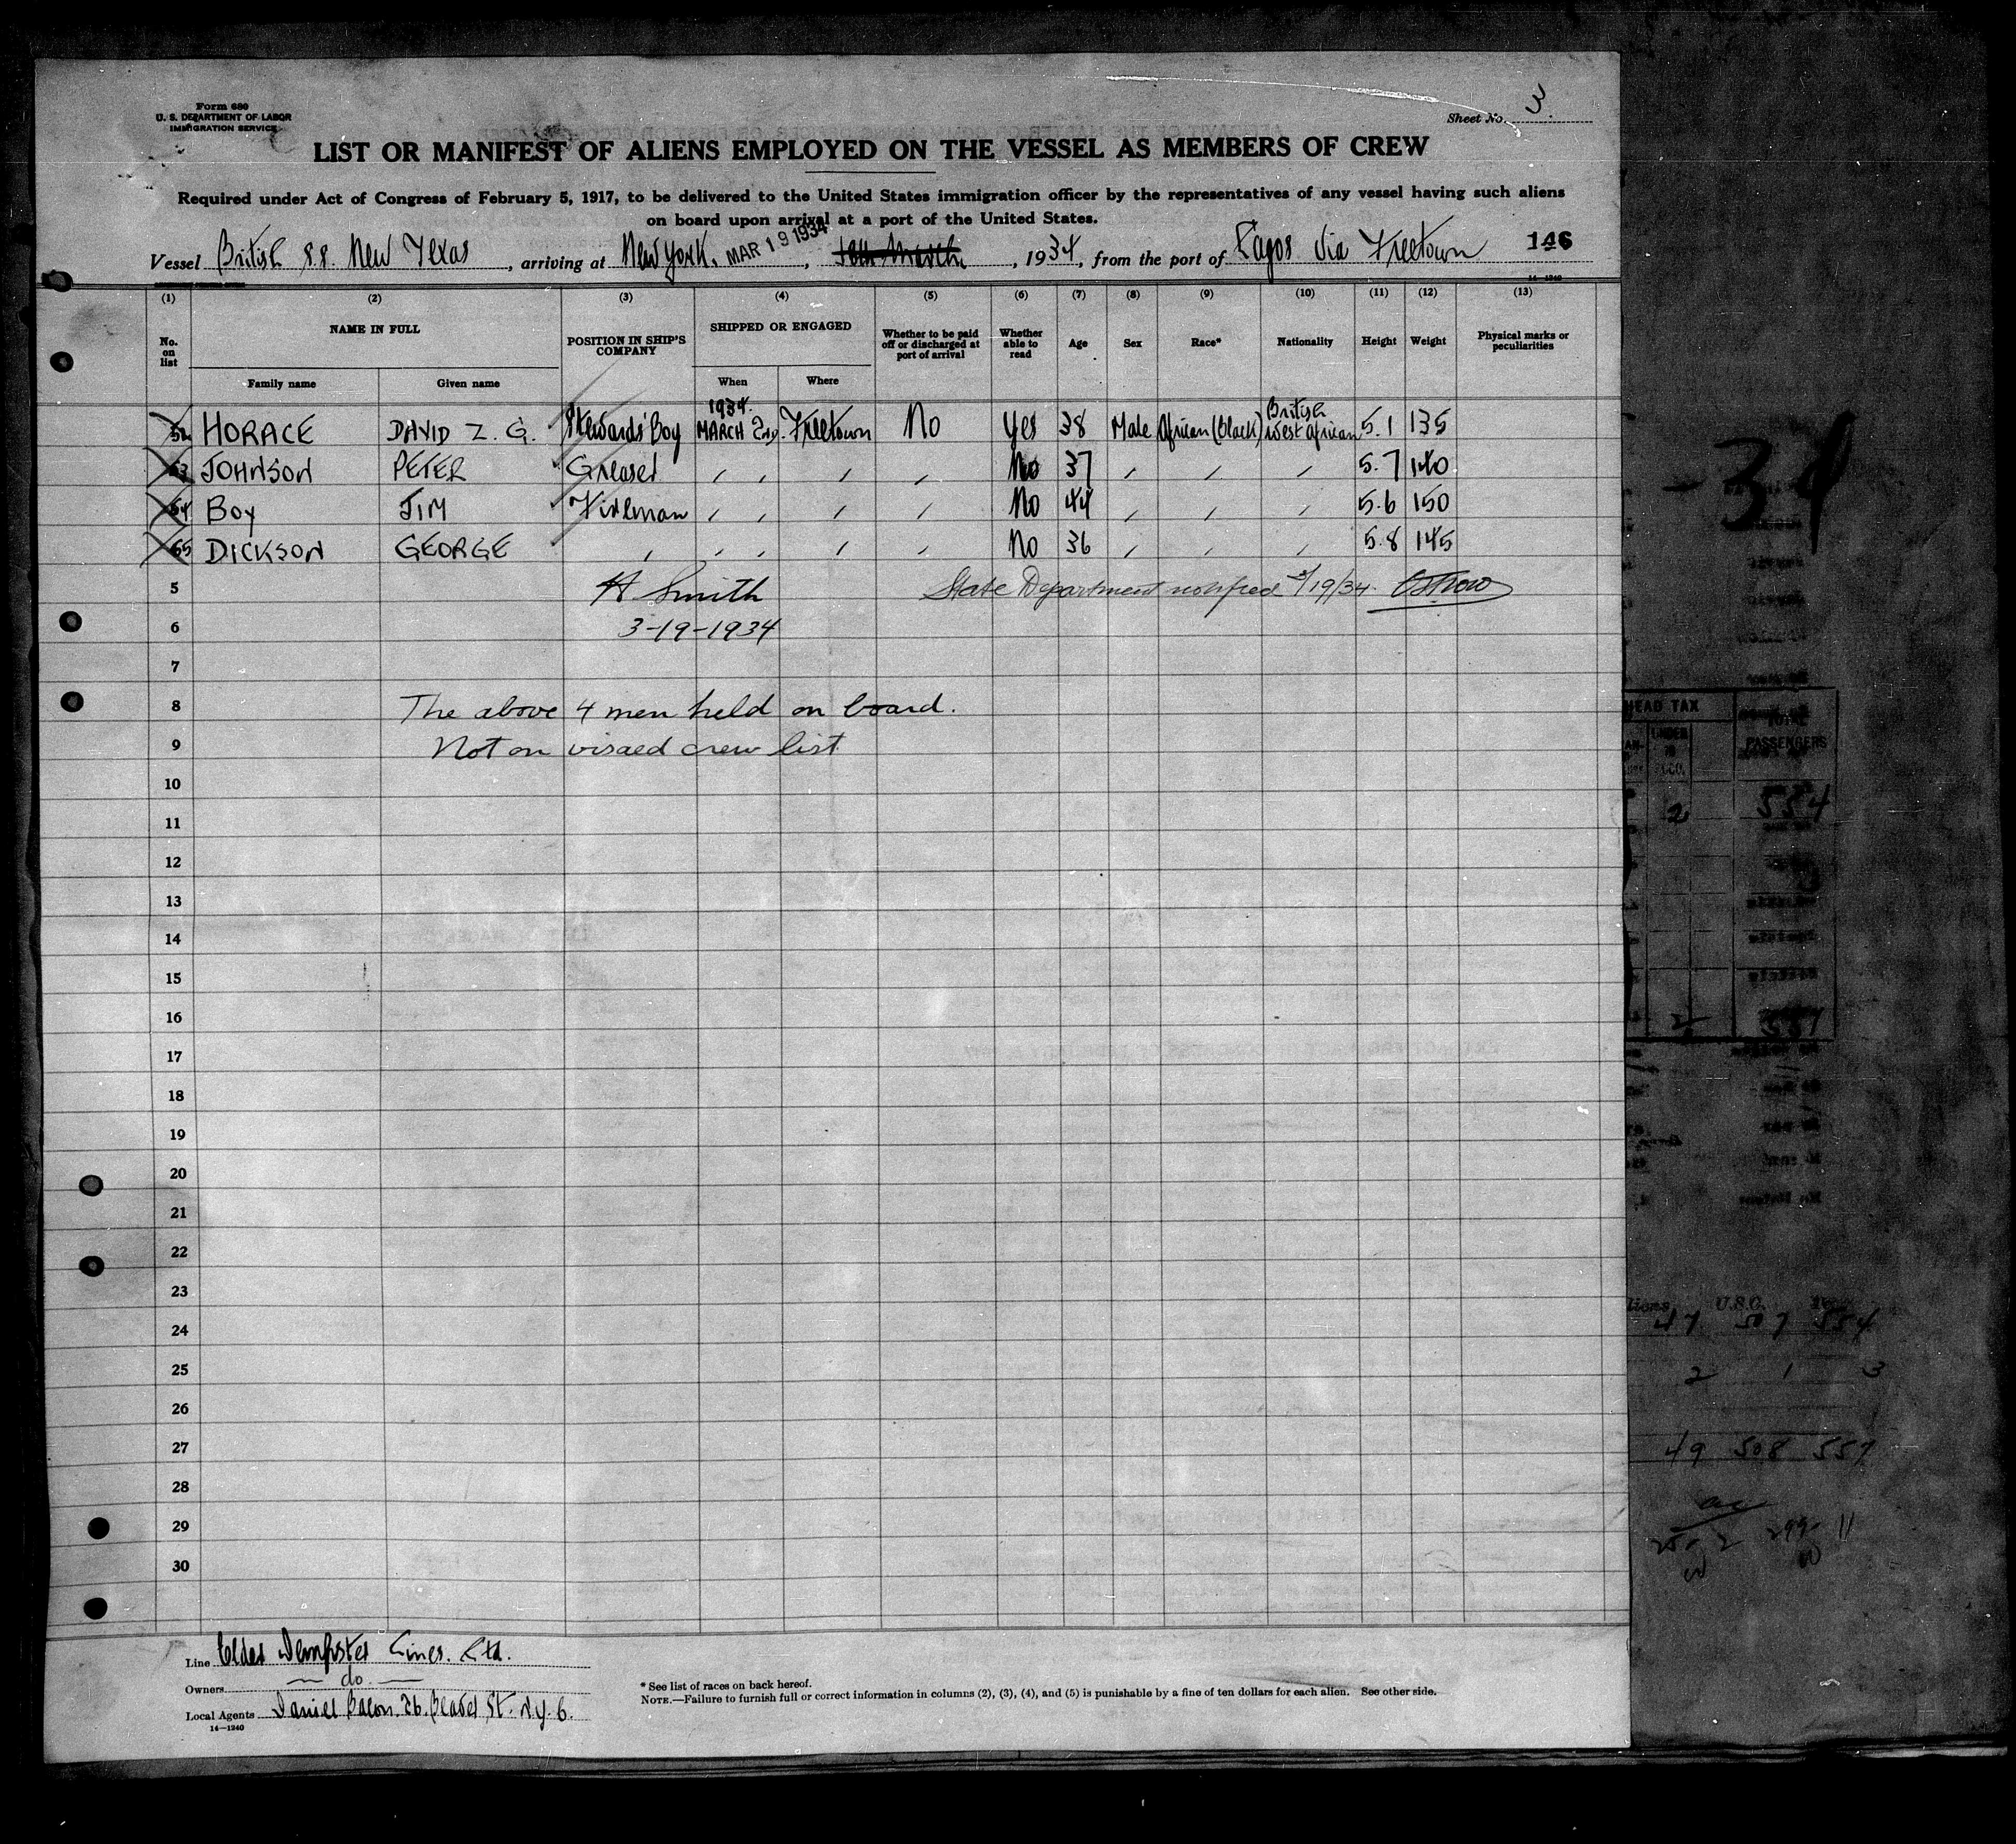 Form 680
U. S. DEPARTMENT OF LABOR
IMMIGRATION SERVICE
Sheet No. 3
LIST OR MANIFEST OF ALIENS EMPLOYED ON THE VESSEL AS MEMBERS OF CREW
Required under Act of Congress of February 5, 1917, to be delivered to the United States immigration officer by the representatives of any vessel having such aliens
on board upon arrival at a port of the United States.
Vessel British S.S. New Texas, arriving at New York. MAR 19 1934, 1934, from the port of Lagos Via Freetown 146
14-1240
(1) (2) (3) (4) (5) (6) (7) (8) (9) (10) (11) (12) (13)
No. on list NAME IN FULL POSITION IN SHIP'S COMPANY SHIPPED OR ENGAGED Whether to be paid off or discharged at port of arrival Whether able to read Age Sex Race* Nationality Height Weight Physical marks or peculiarities
Family name Given name When Where
52 HORACE DAVID Z. G. Stewards' Boy 1934. MARCH 2ND. Freetown No Yes 38 Male African (Black) British West African 5.1 135
53 JOHNSON PETER Greaser " " " " No 37 " " " 5.7 140
54 BOY JIM Fireman " " " " No 44 " " " 5.6 150
55 DICKSON GEORGE " " " " " No 36 " " " 5.8 145
5 A Smith State Department notified 3/19/34
6 3-19-1934
7
8 The above 4 men held on board.
9 Not on visaed crew list
10
11
12
13
14
15
16
17
18
19
20
21
22
23
24
25
26
27
28
29
30
Line Elder Dempster Lines. Ltd.
Owners — do —
Local Agents Daniel Bacon. 26. Beaver St. N.Y. C.
14-1240
* See list of races on back hereof.
NOTE.—Failure to furnish full or correct information in columns (2), (3), (4), and (5) is punishable by a fine of ten dollars for each alien. See other side.
-34
HEAD TAX
TOTAL
PASSENGERS
2 554
3
2 557
U.S.C.
47 507 554
2 1 3
49 508 557